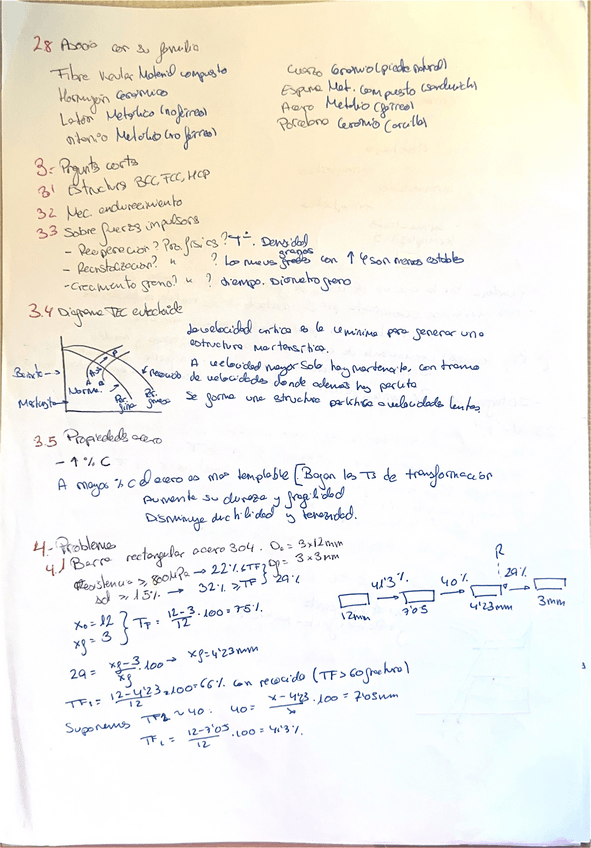 2.8 Asocia con su familia
Fibra Vidrio Material compuesto
Hormigón Cerámico
Latón Metálico (no férreo)
Metálico (no férreo)
Cuarzo Cerámico (piedra natural)
Espuma Mat. compuesto (sandwich)
Acero Metálico (férreo)
Porcelana Cerámico (arcilla)
3.- Pregunta corta
3.1 Estructura BCC, FCC, HCP
3.2 Mec. endurecimiento
3.3 Sobre fuerza impulsora
- Recuperación? Prop. físicas? Densidad
- Recristalización? " ? Los nuevos granos con ↑ φ son menos estables
- Crecimiento grano? " ? tiempo. Diámetro grano
3.4 Diagrama TEC eutectoide
La velocidad crítica es la mínima para generar una
estructura martensítica.
A velocidad mayor solo hay martensita, con tramo
de velocidades donde además hay perlita
Se forma una estructura perlítica a velocidades lentas
Bainita →
Martensita →
Norma.
Recocido
Per. fina
Per. gruesa
3.5 Propiedades acero
- ↑ % C
A mayor % C el acero es más templable [Bajan las Ts de transformación
Aumenta su dureza y fragilidad
Disminuye ductilidad y tenacidad.
4.- Problemas
4.1 Barra rectangular acero 304. D₀ = 3x12mm
Df = 3x3mm
Resistencia ≥ 800MPa → 22% ≤TF
≥ 15% → 32% ≥TF } 29%
x₀ = 12
xf = 3 } TF = 12-3/12 · 100 = 75%.
29 = xf-3/xf · 100 → xf = 4'23mm
TF₁ = 12-4'23/12 x100 = 66% con recocido (TF > 60 fractura)
Suponemos TF2 ~ 40. 40 = x-4'23/x · 100 = 7'05mm
TF₁ = 12-7'05/12 · 100 = 41'3%.
R
41'3% 40% 29%
12mm 7'05 4'23mm 3mm